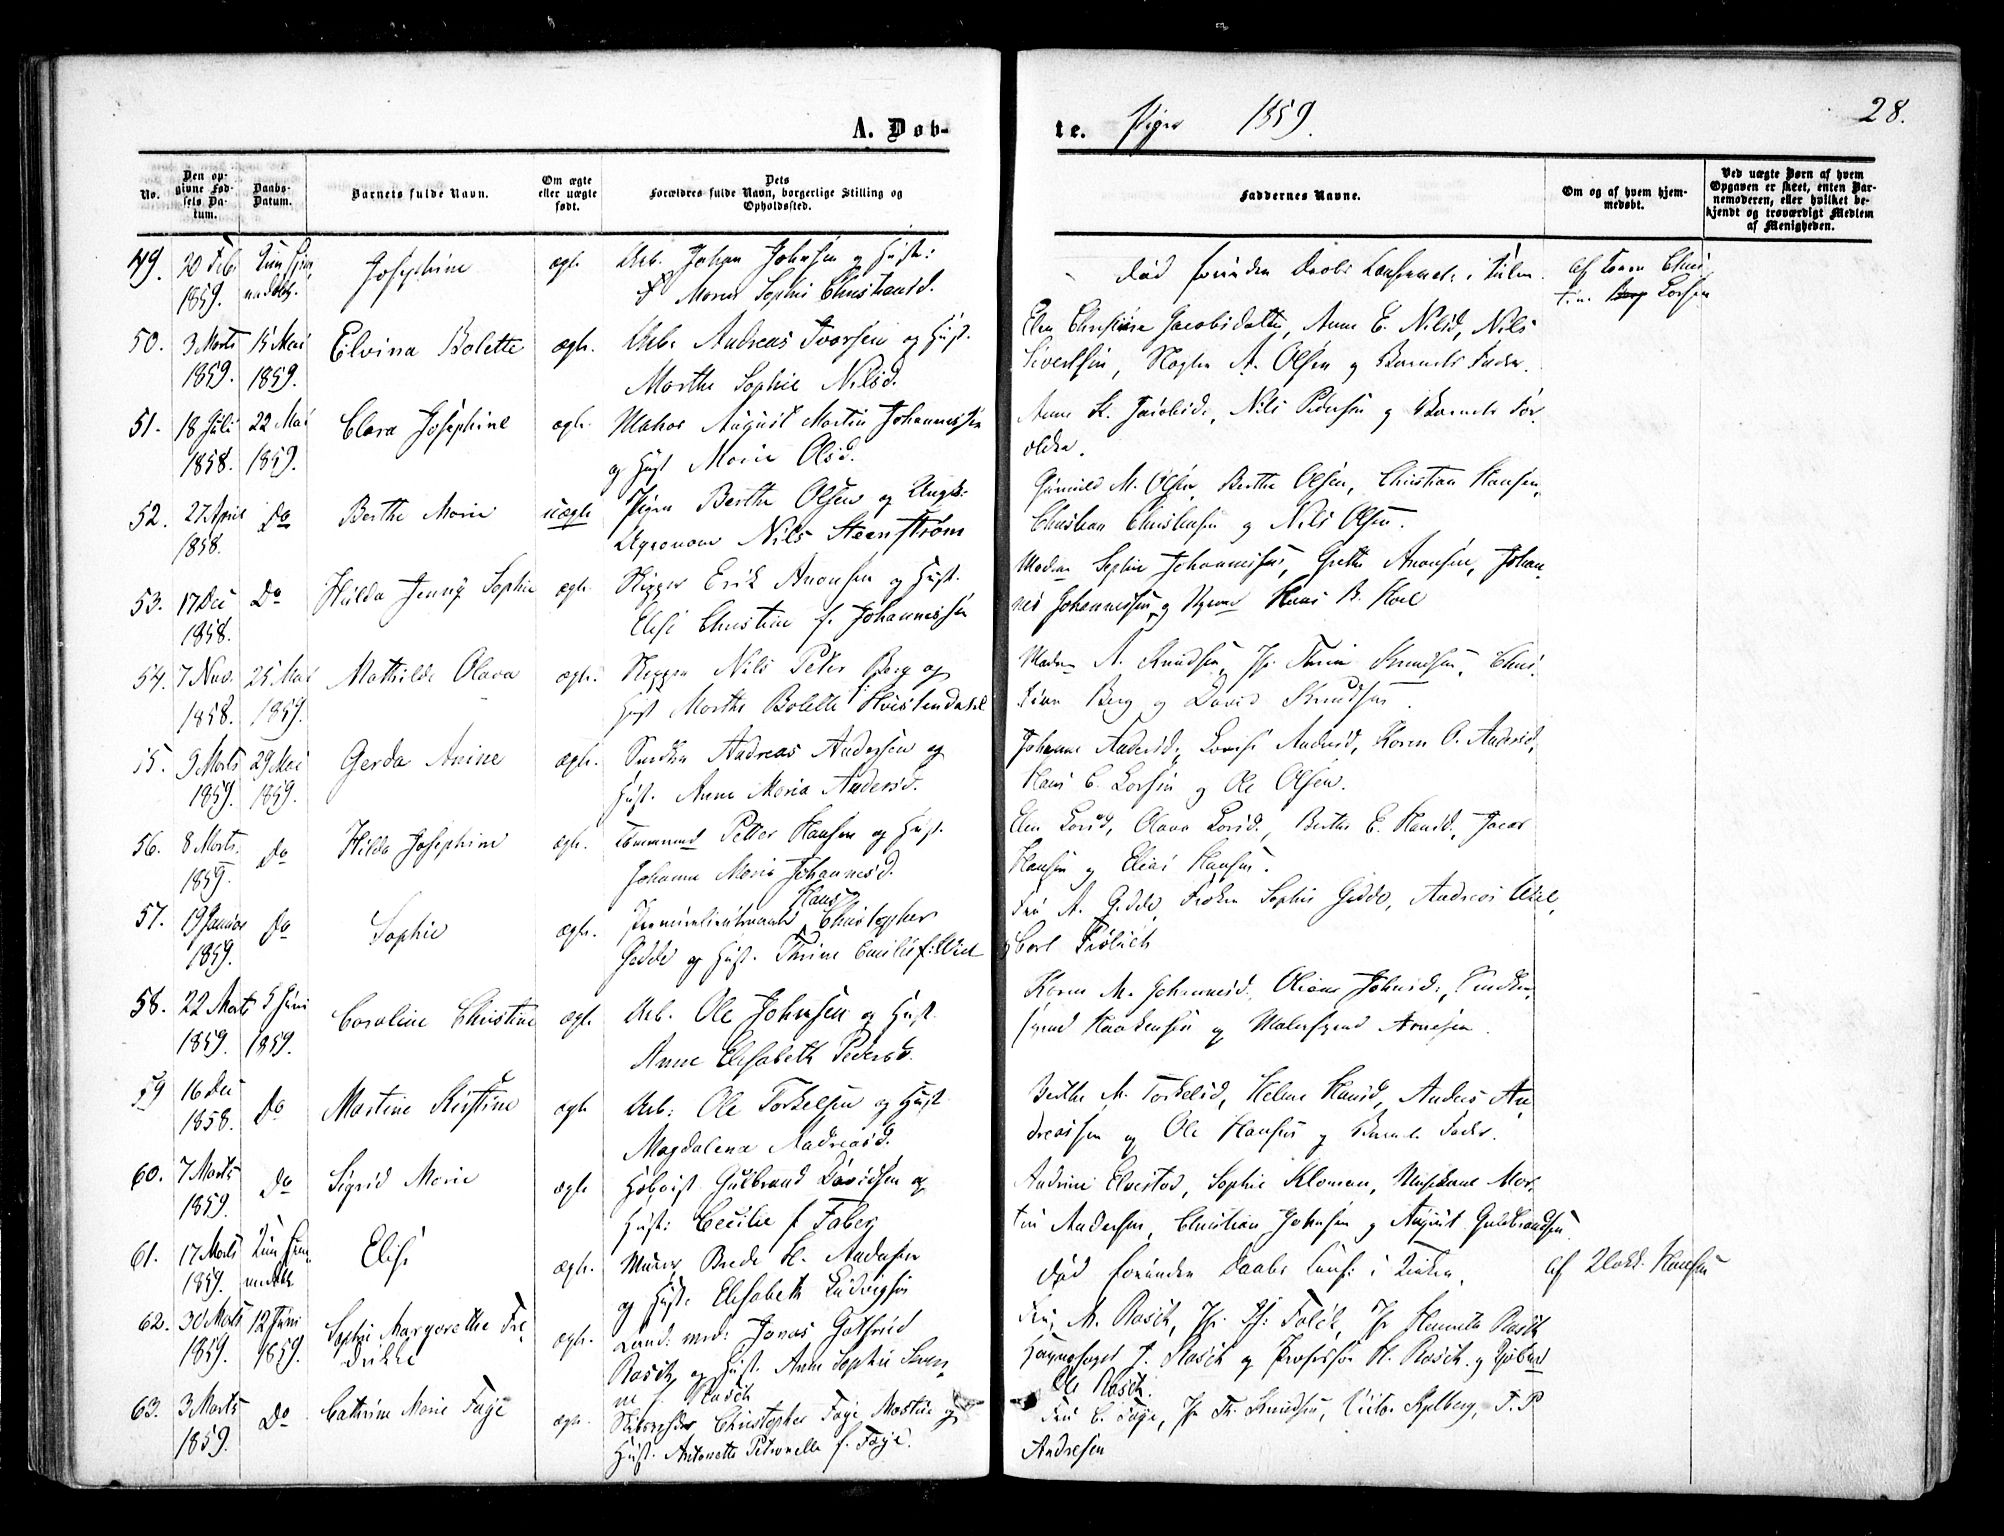 A. Døb-
te. Piger 1859.
28.
No.
Den op-
givne Fød-
sels Da-
tum.
Daabs-
Datum.
Barnets fulde Navn.
Om ægte
eller uægte
født.
Dets
Forældres fulde Navn, borgerlige Stilling og
Opholdssted.
Faddernes Navne.
Om og af hvem hjem-
medøbt.
Ved uægte Børn af hvem
Opgaven er skeet, enten Bar-
nemoderen, eller hvilket be-
kjendt og troværdigt Medlem
af Menigheden.
49. 20 Feb. Kun hjem- Josephine ægte Arb. Johan Johnsen og Hust: død forinden Daabs af
1859. Maren Sophie Christensd. Larsen
50. 3 Marts 15 Mai Elvina Bolette ægte. Arb: Andreas Iversen og Hust. Elen Christine Jacobsdatter, Anne E. Nilsd, Nils
1859. 1859. Marthe Sophie Nilsd. Sivertsen, A. Olsen og Barnets Fader.
51. 18 Juli 22 Mai Clara Josephine ægte. August Martin Johannessen Anne K. Jacobsd. Nils Pedersen og Barnets For-
1858. 1859. og Hust Marie Olsd. ældre.
52. 27 April Do Berthe Marie uægte Pigen Berthe Olsen og Ungk: M. Olsen, Berthe Olsen, Christian Hansen,
1858. Agronom Nils Steenstrøm Christian Christensen og Nils Olsen.
53. 17 Dec Do Hilda Jenny Sophie ægte. Skipper Erik Anonsen og Hust. Madm Sophie Johannessen, Grethe Anonsen, Johan-
1858. Elise Christine f. Johannessen nes Johannessen, og Hans B. Hoel
54. 7 Nov. 25 Mai Mathilde Olava ægte. Skipper Nils Peter Berg og Madm A. Knudsen, Jfr. Trine Knudsen, Chris-
1858. 1859. Hust Marthe Bolette Berg og David Knudsen.
55. 9 Marts 29 Mai Gerda Anine ægte. Snedker Andreas Andersen og Johanne Andersd, Lovise Andersd, Karen O. Andersd,
1859. 1859. Hust. Anne Maria Andersd. Hans C. Larsen og Ole Olsen.
56. 8 Marts. Do Hilda Josephine ægte. Tømmermd Petter Hansen og Hust. Elen Larsd, Olava Larsd., Berthe E. Hansd, Jacob
1859. Johanne Marie Johannesd. Hansen og Elias Hansen.
57. 19 Januar Do Sophie ægte. Premierlieutnant Hans Christopher Fru A. Gedde, Frøken Sophie Gedde, Andreas
1859. Gedde og Hust. Thrine Emilie f. og Carl Frølich
58. 22 Marts 5 Juni Caroline Christine ægte Arb. Ole Johnsen og Hust. Karen M. Johannesd. Oliane Johnsd.,
1859. 1859. Anne Elisabeth Pedersd. Haakensen og Arnesen.
59 16 Dec Do Martine Kristine ægte Arb: Ole Torkelsen og Hust Berthe M. Torkelsd, Helene Hansd, Anders An-
1858. Magdalena Andreasd. dreassen og Ole Hansen og Barnets Fader.
60. 7 Marts Do Sigrid Marie ægte Hoboist Gulbrand Davidsen og Andrine Elvestad, Sophie Kloman, Mor-
1859. Hust: Cecilie f Faber, Andersen, Christian Johnsen og August Guldbrandsen.
61. 17 Marts Kun hjem- Elise ægte. Murer Brede H. Andersen død forinden Daabs i Kirken. af Hansen
1859. og Hust. Elisabeth Ludvigsen
62. 30 Marts 12 Juni Sophie Margarethe Fre- ægte. Cand. med: Jonas Gotfried Fru M. Rasch, Jfr. Folck, Jfr Henriette Rasch
1859. 1859. drikke Rasch og Hust. Anne Sophie J. Rasch og Professor H. Rasch og
f. Rasch Ole Rasch.
63. 3 Marts Do Cathrine Marie Faye ægte. Christopher Faye og Fru C. Faye, Jfr Th. Knudsen, F. P.
1859. Hust. Antonette Petronelle f. Faye. Andresen